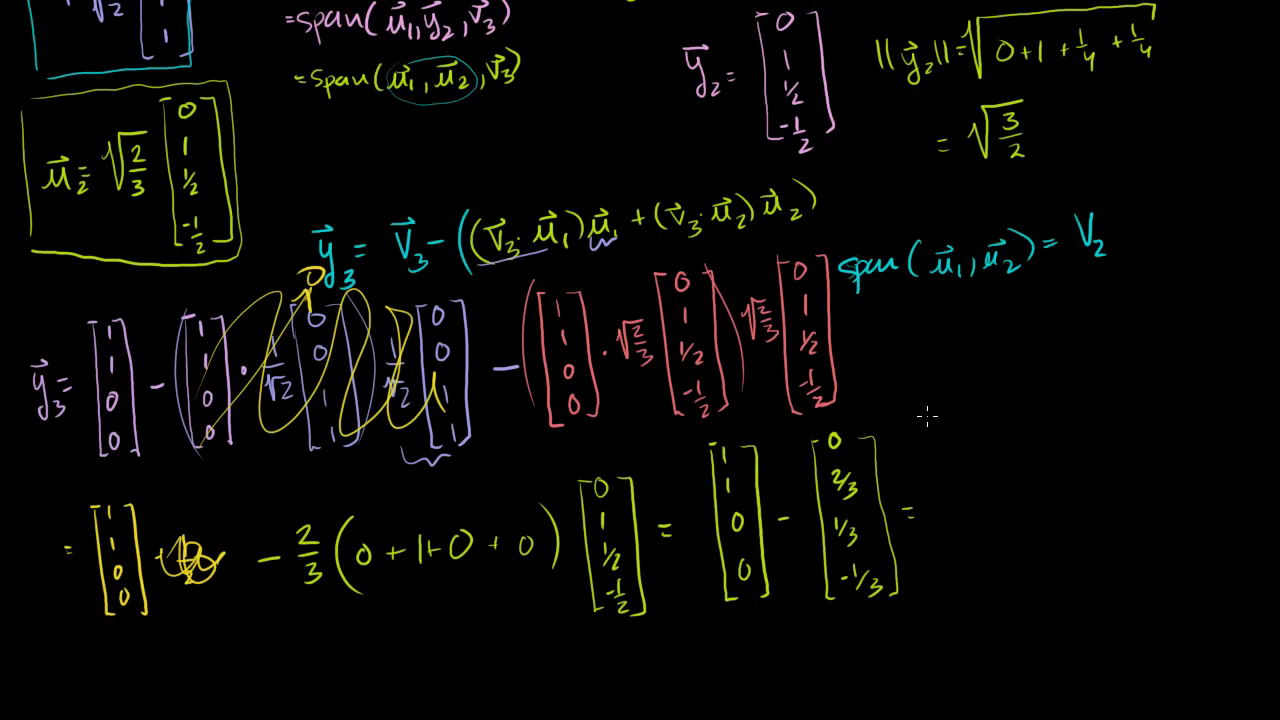 √2 [1; 1]
= span(u⃗₁, y⃗₂, v⃗₃)
= span(u⃗₁, u⃗₂, v⃗₃)
y⃗₂ = [0; 1; 1/2; -1/2]
||y⃗₂|| = √(0+1+1/4+1/4)
= √(3/2)
u⃗₂ = √(2/3) [0; 1; 1/2; -1/2]
y⃗₃ = v⃗₃ - ((v⃗₃·u⃗₁)u⃗₁ + (v⃗₃·u⃗₂)u⃗₂)
span(u⃗₁, u⃗₂) = V₂
0
y⃗₃ = [1; 1; 0; 0] - ([1; 1; 0; 0] · 1/√2 [0; 0; 1; 1]) 1/√2 [0; 0; 1; 1] - ([1; 1; 0; 0] · √(2/3) [0; 1; 1/2; -1/2]) √(2/3) [0; 1; 1/2; -1/2]
= [1; 1; 0; 0] - 2/3 (0+1+0+0) [0; 1; 1/2; -1/2] = [1; 1; 0; 0] - [0; 2/3; 1/3; -1/3] =